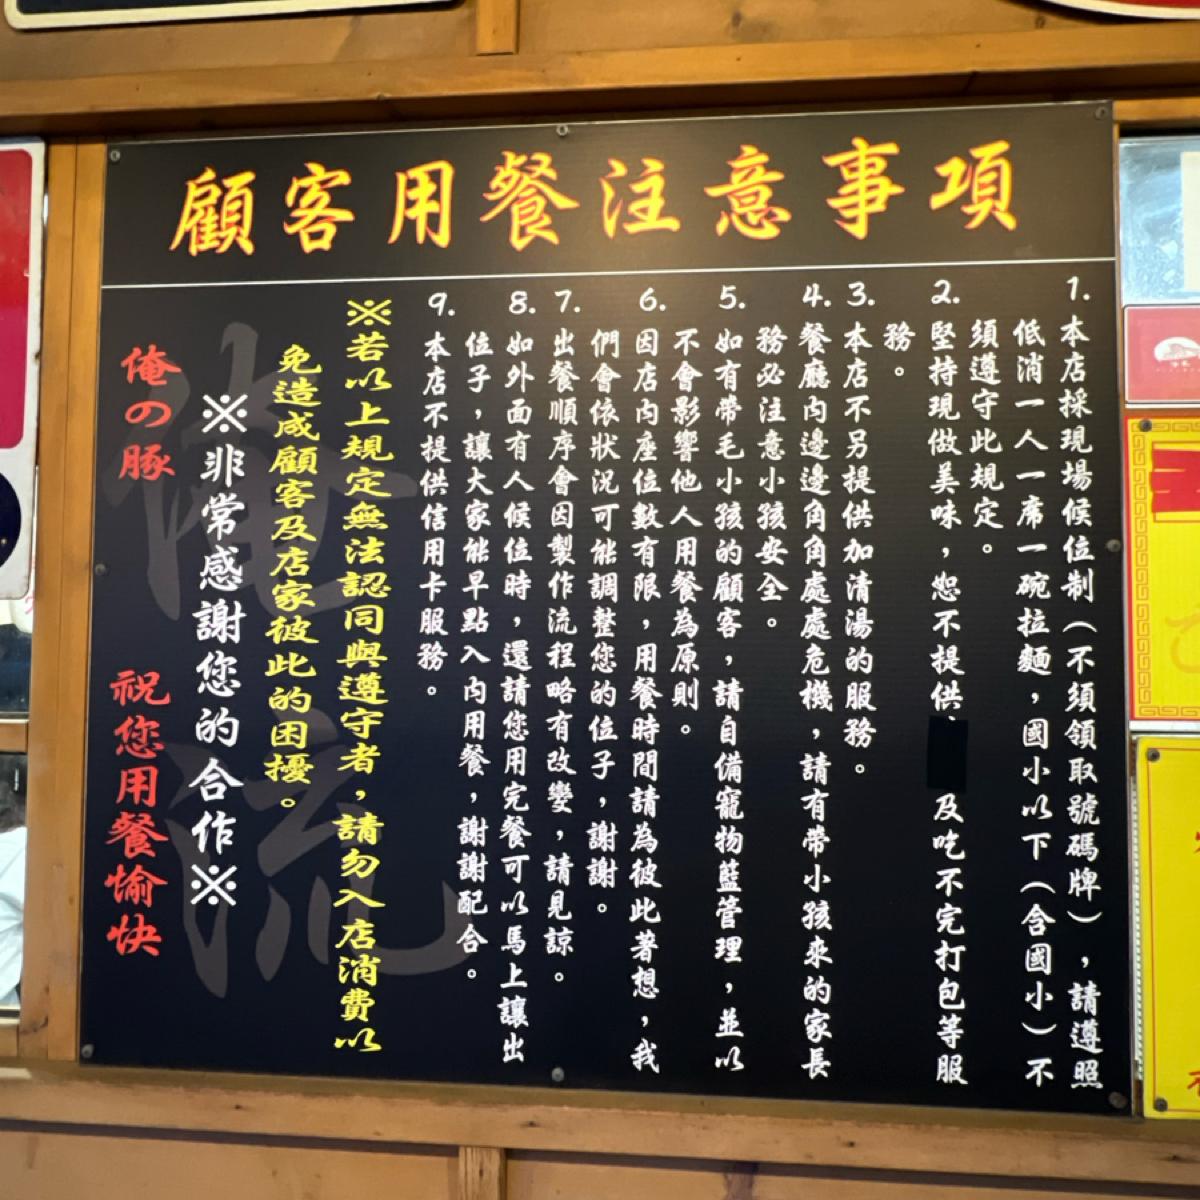 顧客用餐注意事項
1.本店採現場候位制（不須領取號碼牌），請遵照
低消一人一席一碗拉麵，國小以下（含國小）不
須遵守此規定。
2.堅持現做美味，恕不提供、及吃不完打包等服
務。
3.本店不另提供加清湯的服務。
4.餐廳內邊邊角角處處危機，請有帶小孩來的家長
務必注意小孩安全。
5.如有帶毛小孩的顧客，請自備寵物籃管理，並以
不會影響他人用餐為原則。
6.因店內座位數有限，用餐時間請為彼此著想，我
們會依狀況可能調整您的位子，謝謝。
7.出餐順序會因製作流程略有改變，請見諒。
8.如外面有人候位時，還請您用完餐可以馬上讓出
位子，讓大家能早點入內用餐，謝謝配合。
9.本店不提供信用卡服務。
※若以上規定無法認同與遵守者，請勿入店消費以
免造成顧客及店家彼此的困擾。
※非常感謝您的合作※
俺の豚 祝您用餐愉快
俺流